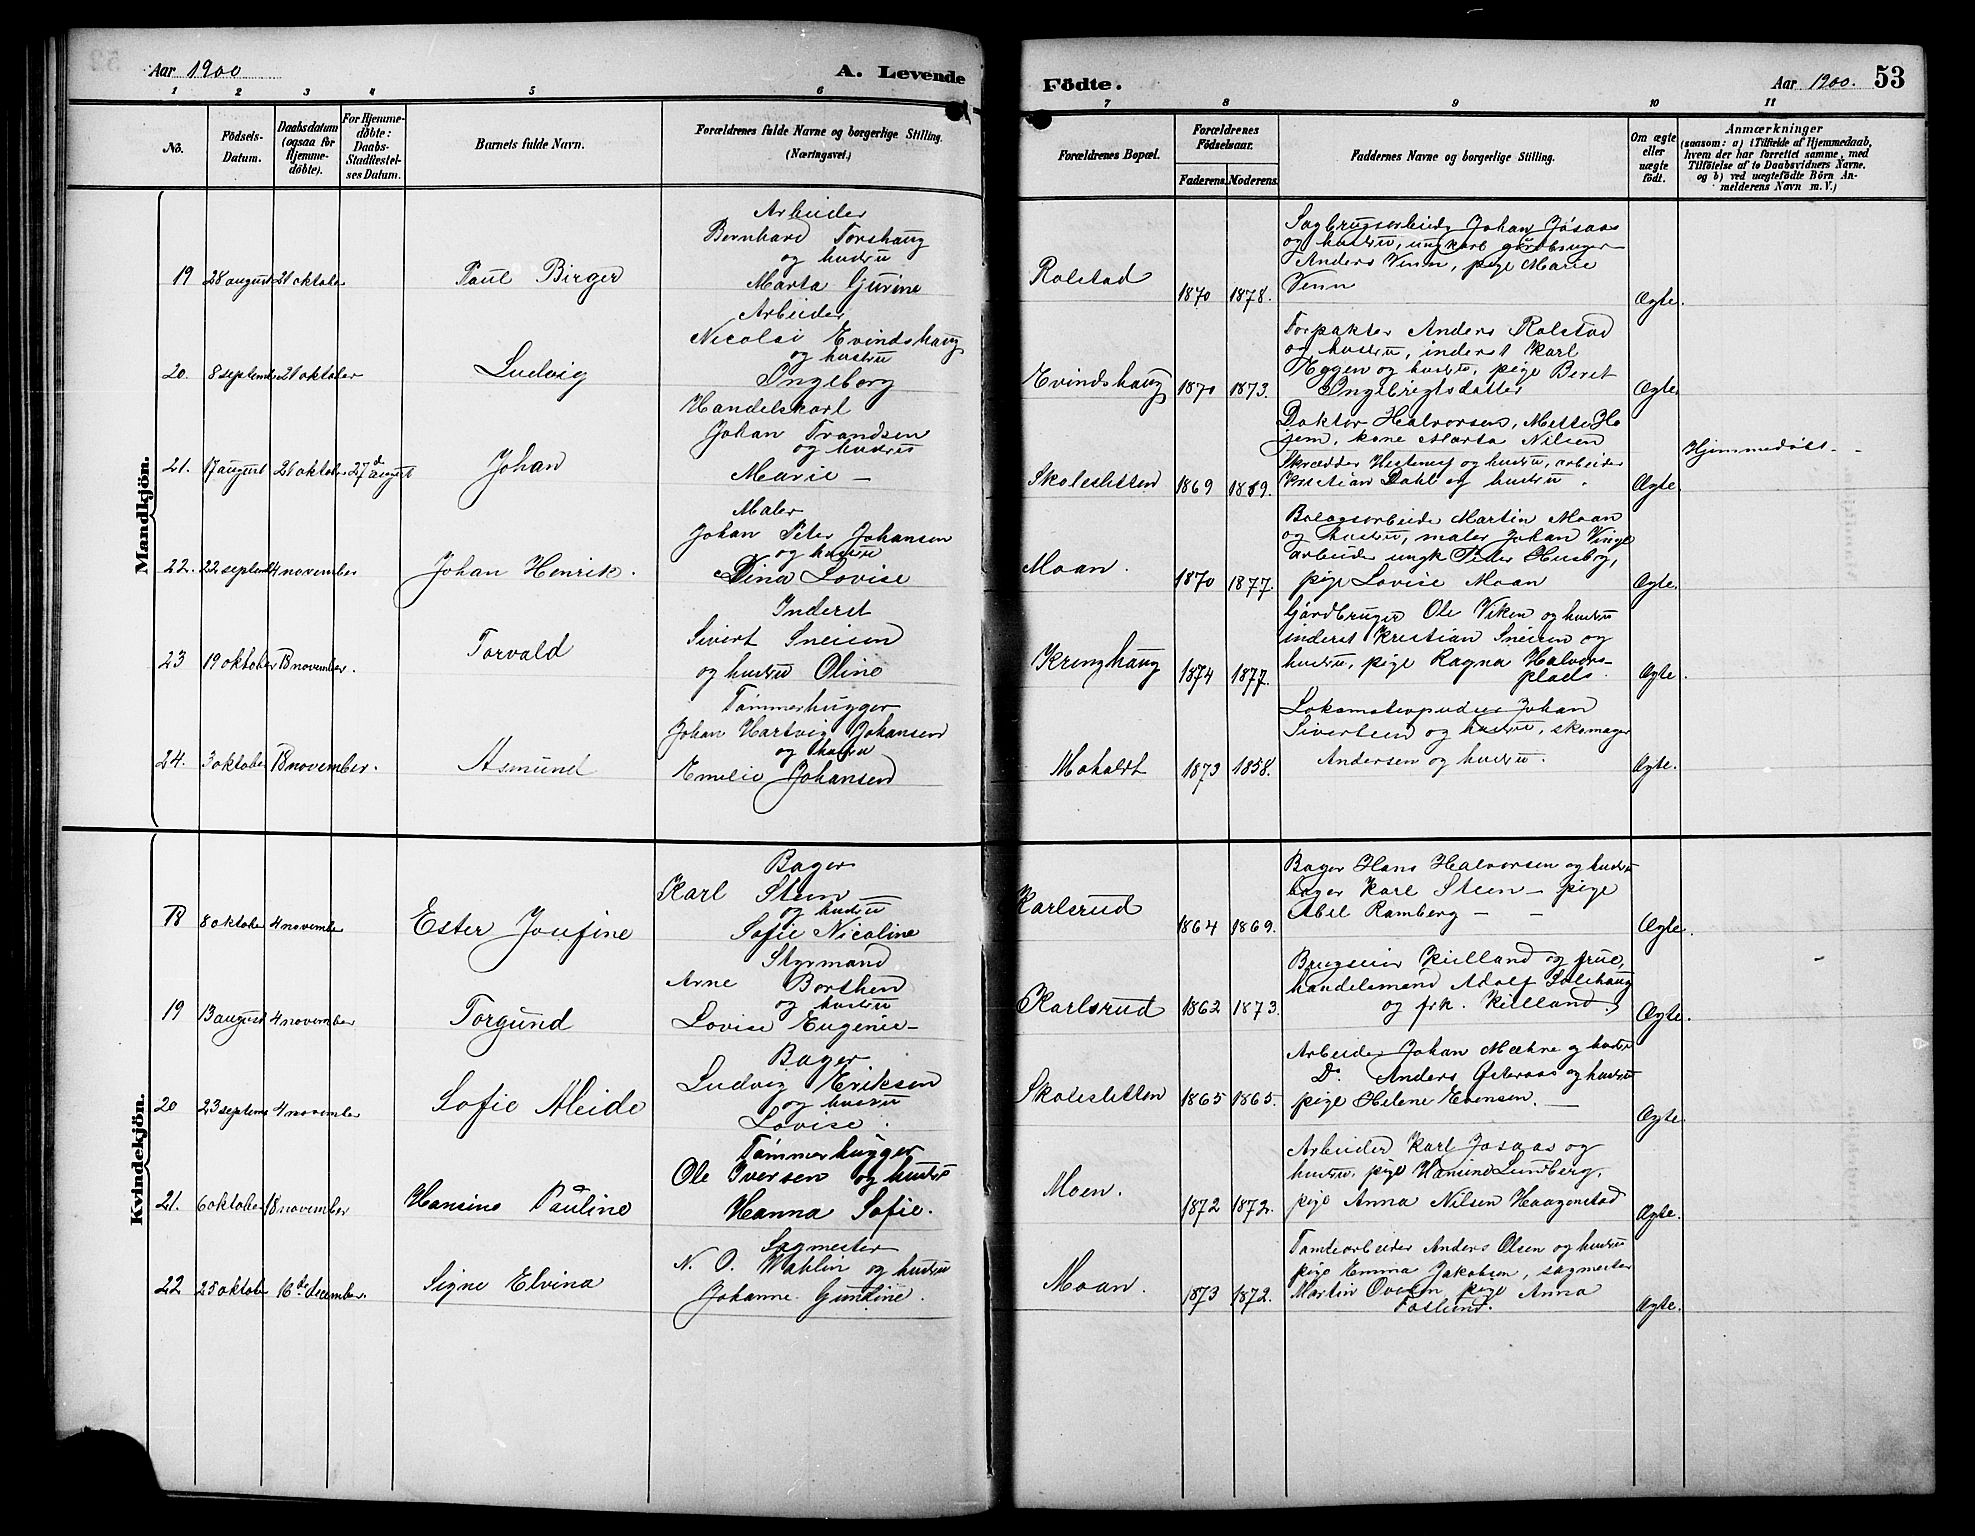 Aar 1900
A. Levende
Födte.
Aar 1900.
53
1 2 3 4 5 6 7 8 9 10 11
No.
Födsels-
Datum.
Daabsdatum
(ogsaa for
Hjemme-
döbte).
For Hjemme-
døbte:
Daabs-
Stadfæstel-
ses Datum.
Barnets fulde Navn.
Forældrenes fulde Navne og borgerlige Stilling.
(Næringsvei.)
Forældrenes Bopæl.
Forældrenes
Fødselsaar.
Faderens. Moderens.
Faddernes Navne og borgerlige Stilling.
Om ægte
eller
uægte
født.
Anmærkninger
(saasom: a) i Tilfælde af Hjemmedaab,
hvem der har forrettet samme, med
Tilföielse af to Daabsvidners Navne,
og b) ved uægtefödte Börn An-
melderens Navn m. V.)
Mandkjön.
19 28 august 21 oktober
Paul Birger
Arbeider
Bernhard Torshaug
og hustru
Marta Gurine
Rolstad
1870 1878.
Sagbrugsarbeider Johan Jøsaas
og hustru, ungkarl gårdbruger
Anders Venn, pige Marie
Venn
Ægte.
20. 8 septembe 21 oktober
Ludvig
Arbeider
Nicolai Evindshaug
og hustru
Ingeborg
Evindshaug
1870 1873.
Forpakter Anders Rolstad
og hustru, inderst Karl
Eggen og hustru, pige Beret
Ingebrigtsdatter
Ægte
21. 17 august 21 oktober 27d august
Johan
Handelskarl
Johan Trandsen
og hustru
Marie –
Skolesletten
1869 1869.
Doktor Halvorsen, Mette Ho
jem, kone Marta Nilsen
Skrædder Hestenes og hustru, arbeider
Kristian Dahl og hustru.
Ægte.
Hjemmedøbt. –
22. 22 septemb 4 november
Johan Henrik.
Maler
Johan Peter Johansen
og hustru
Dina Lovise
Moan.
1870 1877.
Bolagsarbeide Martin Moan
og hustru, maler Johan Vinge
arbeider ungk Peter Husby,
pige Lovise Moan
Ægte.
23 19 oktober 18 november.
Torvald
Inderst
Sivert Sneisen
og hustru Oline
Kringhaug
1874 1877.
Gårdbruger Ole Viken og hustru
inderst Kristian Sneisen og
hustru, pige Ragna Halvors-
plads.
Ægte.
24. 3 oktober 18 november.
Asmund
Tømmerhugger
Johan Hartvig Johansen
og hustru
Emelie Johansen
Moholdt
1873 1858.
Lokomotivpudser Johan
Sivertsen og hustru, skomager
Andersen og hustru.
Ægte.
Kvindekjön.
18 8 oktobe 4 novembe
Ester Josefine
Bager
Karl Steen –
og hustru
Sofie Nicoline
Karlsrud
1864 1869.
Bager Hans Halvorsen og hustru
bager Karl Steen – pige
Abel Ramberg – –
Ægte.
19 13 august 4 november
Torgund
Styrmand
Arne Borthen
og hustru
Lovise Eugenie –
Karlsrud
1862 1873.
Brugseier Kielland og frue,
handelsmand Adolf Solehaug
og frk. Killand.
Ægte.
20 23 septemb 4 november
Sofie Aleide
Bager
Ludvig Eriksen
og hustru
Lovise.
Skoleslitten
1865 1865.
Arbeider Johan Mæhre og hustru
Do. Anders Østeraas og hustru
pige Helene Evensen. –
Ægte.
21. 6 oktober 18 november
Hansine Pauline
Tømmerhugger
Ole Iversen og hustru
Hanna Sofie.
Moen.
1872 1872.
Arbeider Karl Josaas og
hustru, pige Hansine Lundberg,
pige Anna Nilsen Haagenstad
Ægte.
22 25 oktober 16de december.
Signe Elvina
Sagmester
N. O. Wahlin og hustru
Johanne Gunline.
Moan.
1873 1872.
Tomtearbeider Anders Olsen og hustru
pige Emma Jakobsen, sagmester
Martin Ovesen pige Anna
Foslund.
Ægte.